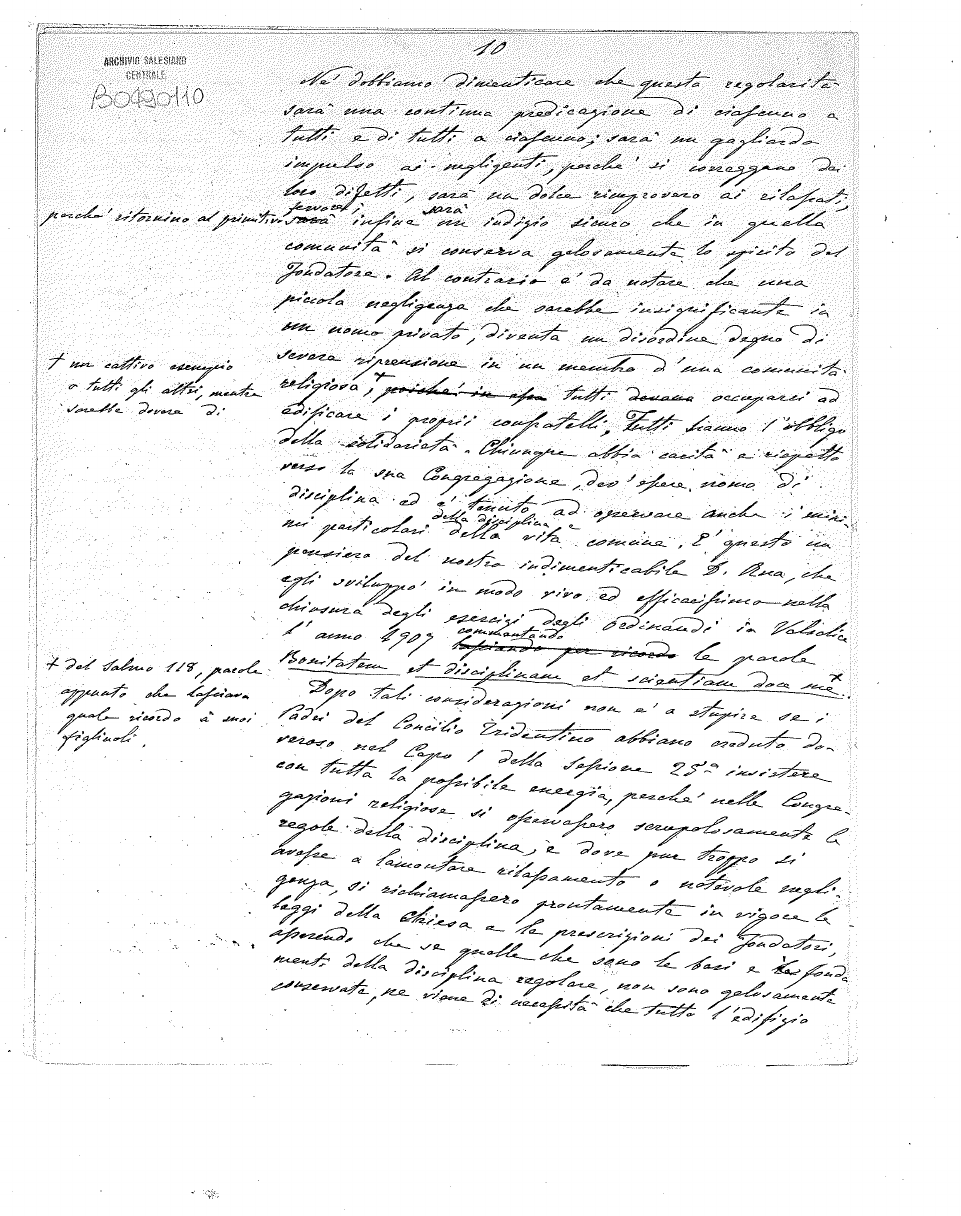 10
ARCHIVIO SALESIANO
CENTRALE
B0490110
Nè dobbiamo dimenticare che questa regolarità
sarà una continua predicazione di ciascuno a
tutti e di tutti a ciascuno; sarà un gagliardo
impulso ai negligenti, perchè si correggano dei
loro difetti, sarà un dolce rimprovero ai rilassati,
perchè ritornino al primitivo fervore; sarà infine sarà un indizio sicuro che in quella
comunità si conserva gelosamente lo spirito del
Fondatore. Al contrario è da notare che una
piccola negligenza che sarebbe insignificante in
un uomo privato, diventa un disordine degno di
severa riprensione in un membro d'una comunità
religiosa, + poichè in essa tutti devono occuparsi ad
+ un cattivo esempio
a tutti gli altri, mentre
sarebbe dovere di
edificare i proprii confratelli. Tutti hanno l'obbligo
della solidarietà. Chiunque abbia carità e rispetto
verso la sua Congregazione, dev'essere uomo di
disciplina ed è tenuto ad osservare anche i mini-
mi particolari della disciplina e della vita comune. E' questo un
pensiero del nostro indimenticabile D. Rua, che
egli sviluppò in modo vivo ed efficacissimo nella
chiusura degli esercizi degli ordinandi in Valsalice
l'anno 1907 commentando lasciando per ricordo le parole
Bonitatem et disciplinam et scientiam doce me +.
+ del Salmo 118, parole
appunto che lasciava
quale ricordo à suoi
figliuoli.
Dopo tali considerazioni non è a stupire se i
Padri del Concilio Tridentino abbiano creduto do-
veroso nel Capo 1 della Sessione 25ª insistere
con tutta la possibile energia, perchè nelle Congre-
gazioni religiose si osservassero scrupolosamente le
regole della disciplina, e dove pur troppo si
avesse a lamentare rilassamento o notevole negli-
genza, si richiamassero prontamente in vigore le
leggi della Chiesa e le prescrizioni dei Fondatori,
asserendo che se quelle che sono le basi e fonda
menti della disciplina regolare, non sono gelosamente
conservate, ne viene di necessità che tutto l'edifizio